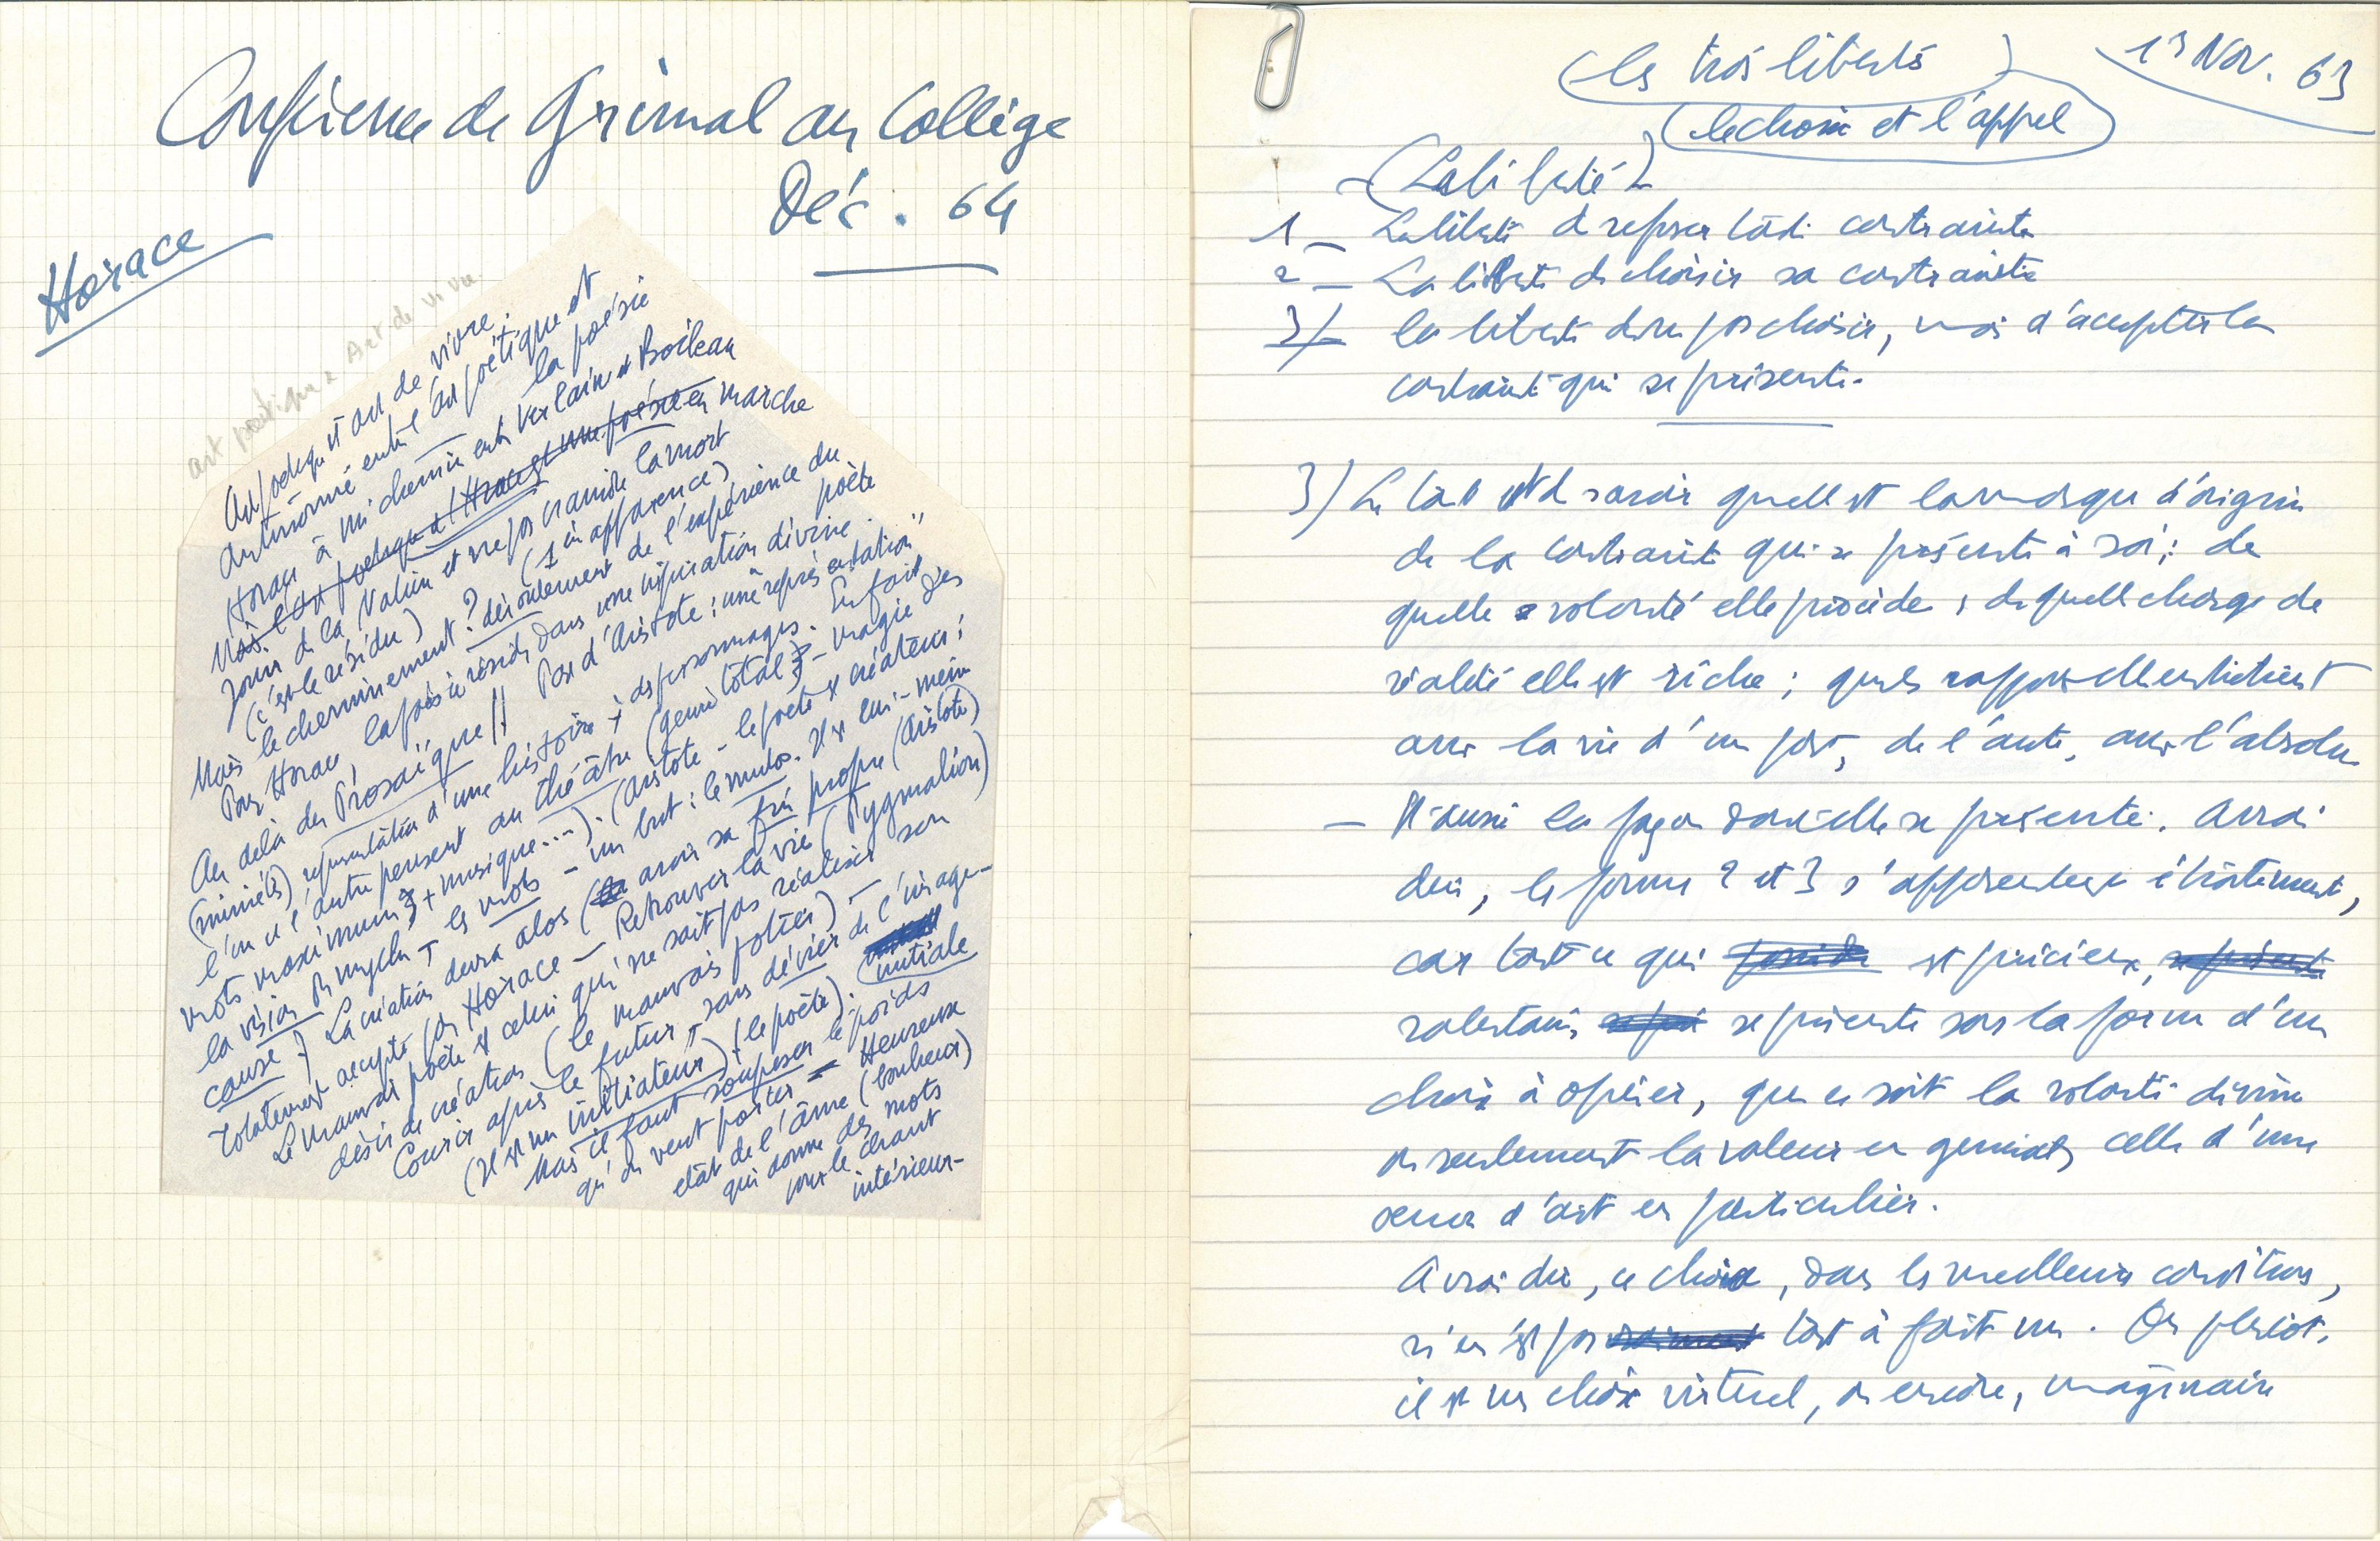 Conférence de Grimal au Collège
Déc. 64
Horace
art poétique & Art de vivre
Art poétique et art de vivre.
Antinomie entre l'art poétique et
la poésie
Horace à mi chemin entre Verlaine et Boileau
Mais l'Art poétique d'Horace est une poésie en marche
jour de la Valeur et ne pas craindre la mort
(c'est le résidu) (1 en apparence)
Mais le cheminement? déroulement de l'expérience du
poète
Pour Horace, la poésie réside dans une inspiration divine
Au delà du Prosaïque!! Pas d'Aristote: une représentation"
(mimésis) représentation d'une histoire + des personnages. En fait
l'un et l'autre pensent au théâtre (genre total) – magie des
mots maximum + musique...). (Aristote – le poète est créateur:
la vision du mythe – les mots – un but: le muthos. Il est lui-même
cause) La création devra alors avoir sa fin propre (Aristote)
Totalement accepté par Horace – Retrouver la vie (Pygmalion)
Le mauvais poète est celui qui ne sait pas réaliser son
désir de création (le mauvais potier) –
Courir après le futur, sans dévier de l'image
initiale
(Il est un initiateur) (le poète).
Mais il faut soupeser le poids
qu'on veut porter – Heureuse
état de l'âme (bonheur)
qui donne des mots
pour le chant
intérieur –
Les trois libertés
13 Nov. 63
le choix et l'appel
– (La liberté)
1 – La liberté de refuser toute contrainte
2 – La liberté de choisir sa contrainte
3/ – la liberté de ne pas choisir, mais d'accepter la
contrainte qui se présente.
3) Le tout est de savoir quelle est la marque d'origine
de la contrainte qui se présente à soi; de
quelle volonté elle procède; de quelle charge de
réalité elle est riche; quels rapports elle entretient
avec la vie d'une part, de l'autre, avec l'absolu
– Et aussi la façon dont elle se présente. A vrai
dire, les formes 2 et 3 s'apparentent étroitement,
car tout ce qui est précieux,
se présente sous la forme d'un
choix à opérer, que ce soit la volonté divine
ou seulement la valeur en general, celle d'une
oeuvre d'art en particulier.
A vrai dire, ce choix, dans les meilleures conditions,
n'en est pas vraiment tout à fait un. Ou plutôt,
il est un choix virtuel, ou encore, imaginaire